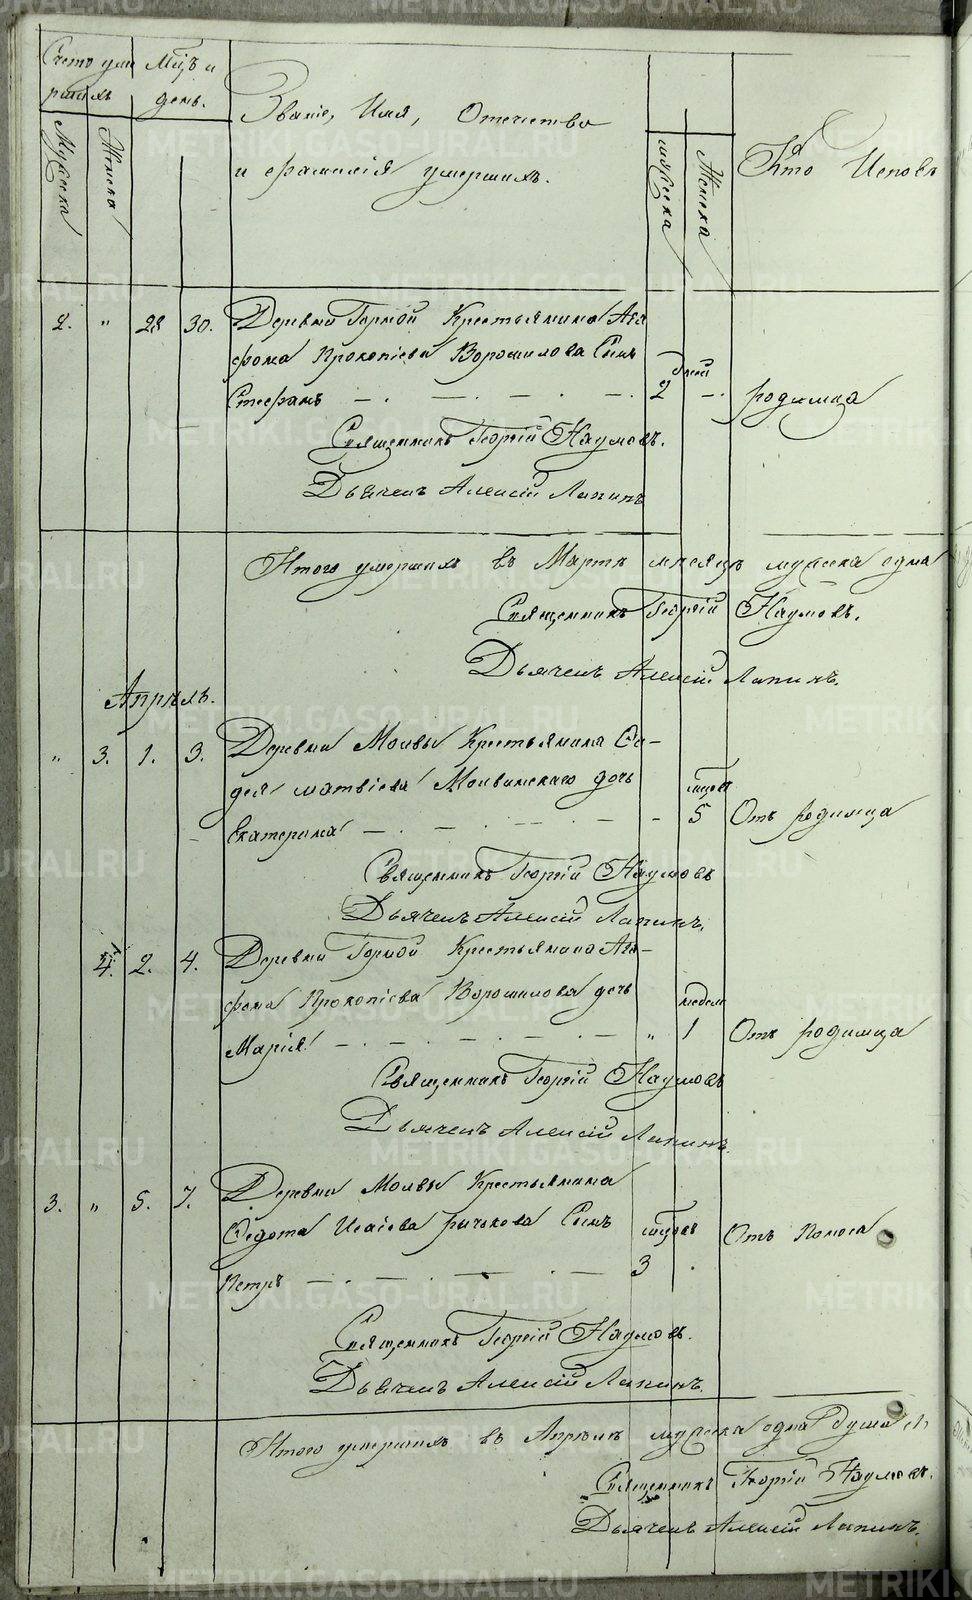 Счетъ уме Мц̃ъ и
ршихъ день.
Мужеска
Женска
Званіе, Имя, Отчество
и фамилія умершихъ.
мужеска
Женска
Кто Исповѣ
2. " 28 30. Деревни Горной Крестьянина Ага
фона Прокопіева Ворошилова Сынъ
дней
Стефанъ — . — . — . — . 2 — . родимца
Священникъ Георгій Наумовъ.
Дьячекъ Алексій Лапинъ
Итого умершихъ въ Мартѣ мѣсяцѣ мужеска одна
Священникъ Георгій Наумовъ.
Дьячекъ Алексій Лапинъ.
Апрѣль.
" 3. 1. 3. Деревни Молвы Крестьянина Са-
вея матвіева Молвинскаго дочь
мцовъ
Екатерина — . — . — — — 5 Отъ родимца
Священникъ Георгій Наумовъ
Дьячекъ Алексій Лапинъ.
4. 2. 4. Деревни Горной Крестьянина Ага-
фона Прокопіева Ворошилова дочь
недели
Марія — . — . — . — . — " 1 Отъ родимца
Священникъ Георгій Наумовъ
Дьячекъ Алексій Лапинъ.
3. " 5. 7. Деревни Молвы Крестьянина
Федота Исаіева рычкова Сынъ мцовъ Отъ Поноса
Петръ — . — . — . — . — 3 .
Священникъ Георгій Наумовъ.
Дьячекъ Алексій Лапинъ.
Итого умершихъ въ Апрѣлѣ мужеска одна душа
Священникъ Георгій Наумовъ.
Дьячекъ Алексій Лапинъ.
METRIKI.GASO-URAL.RU